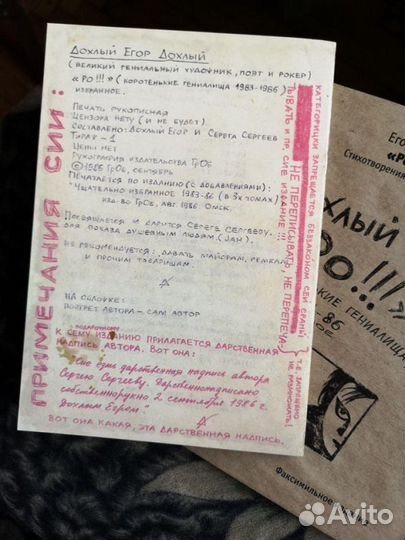 ПРИМЕЧАНИЯ СИИ:
Дохлый Егор Дохлый
(великий гениальный художник, поэт и рокер)
«РО!!!» (коротенькие гениалища 1983-1986)
избранное.
Печать рукописная
Цензора нету (и не будет).
Составлено: Дохлый Егор и Серёга Сергеев
Тираж – 1
Цены нет
Рукография издательства ГрОб
©1986 ГрОб, сентябрь
Печатается по изданию (с добавлениями):
"Тщательно избранное 1983-86 (в 3х томах)
изд. во ГрОб, авг. 1986 Омск.
Посвящается и дарится Серёге Сергееву,
для показа душевным людям (дай).
Не рекомендуется: давать майорам,
и прочим товарищам.
На обложке:
портрет автора – сам автор
К сему поданочному изданию прилагается дарственная
надпись автора. Вот она:
"Сие есть дарственная надпись автора
Сергею Сергееву.
собственноручно 2 сентября 1986 г.
Дохлым Егором."
Вот она какая, эта дарственная надпись.
КАТЕГОРИЦКИ ЗАПРЕЩАЕТСЯ БЕЗЗАКОНОМ СЕЙ СТРАНЫ
НЕ ПЕРЕПИСЫВАТЬ, НЕ ПЕРЕПЕЧА-
ТЫВАТЬ И ПР. СИЕ ИЗДАНИЕ!!!
(Т.Е. ЗАПРЕЩЕНО
НЕ РАЗМНОЖАТЬ!)
Его
«Р
Стихотворения
ХЛЫЙ
РО!!!»
КИЕ ГЕНИАЛИЩА
86
ОЕ
Факсимильное
Avito